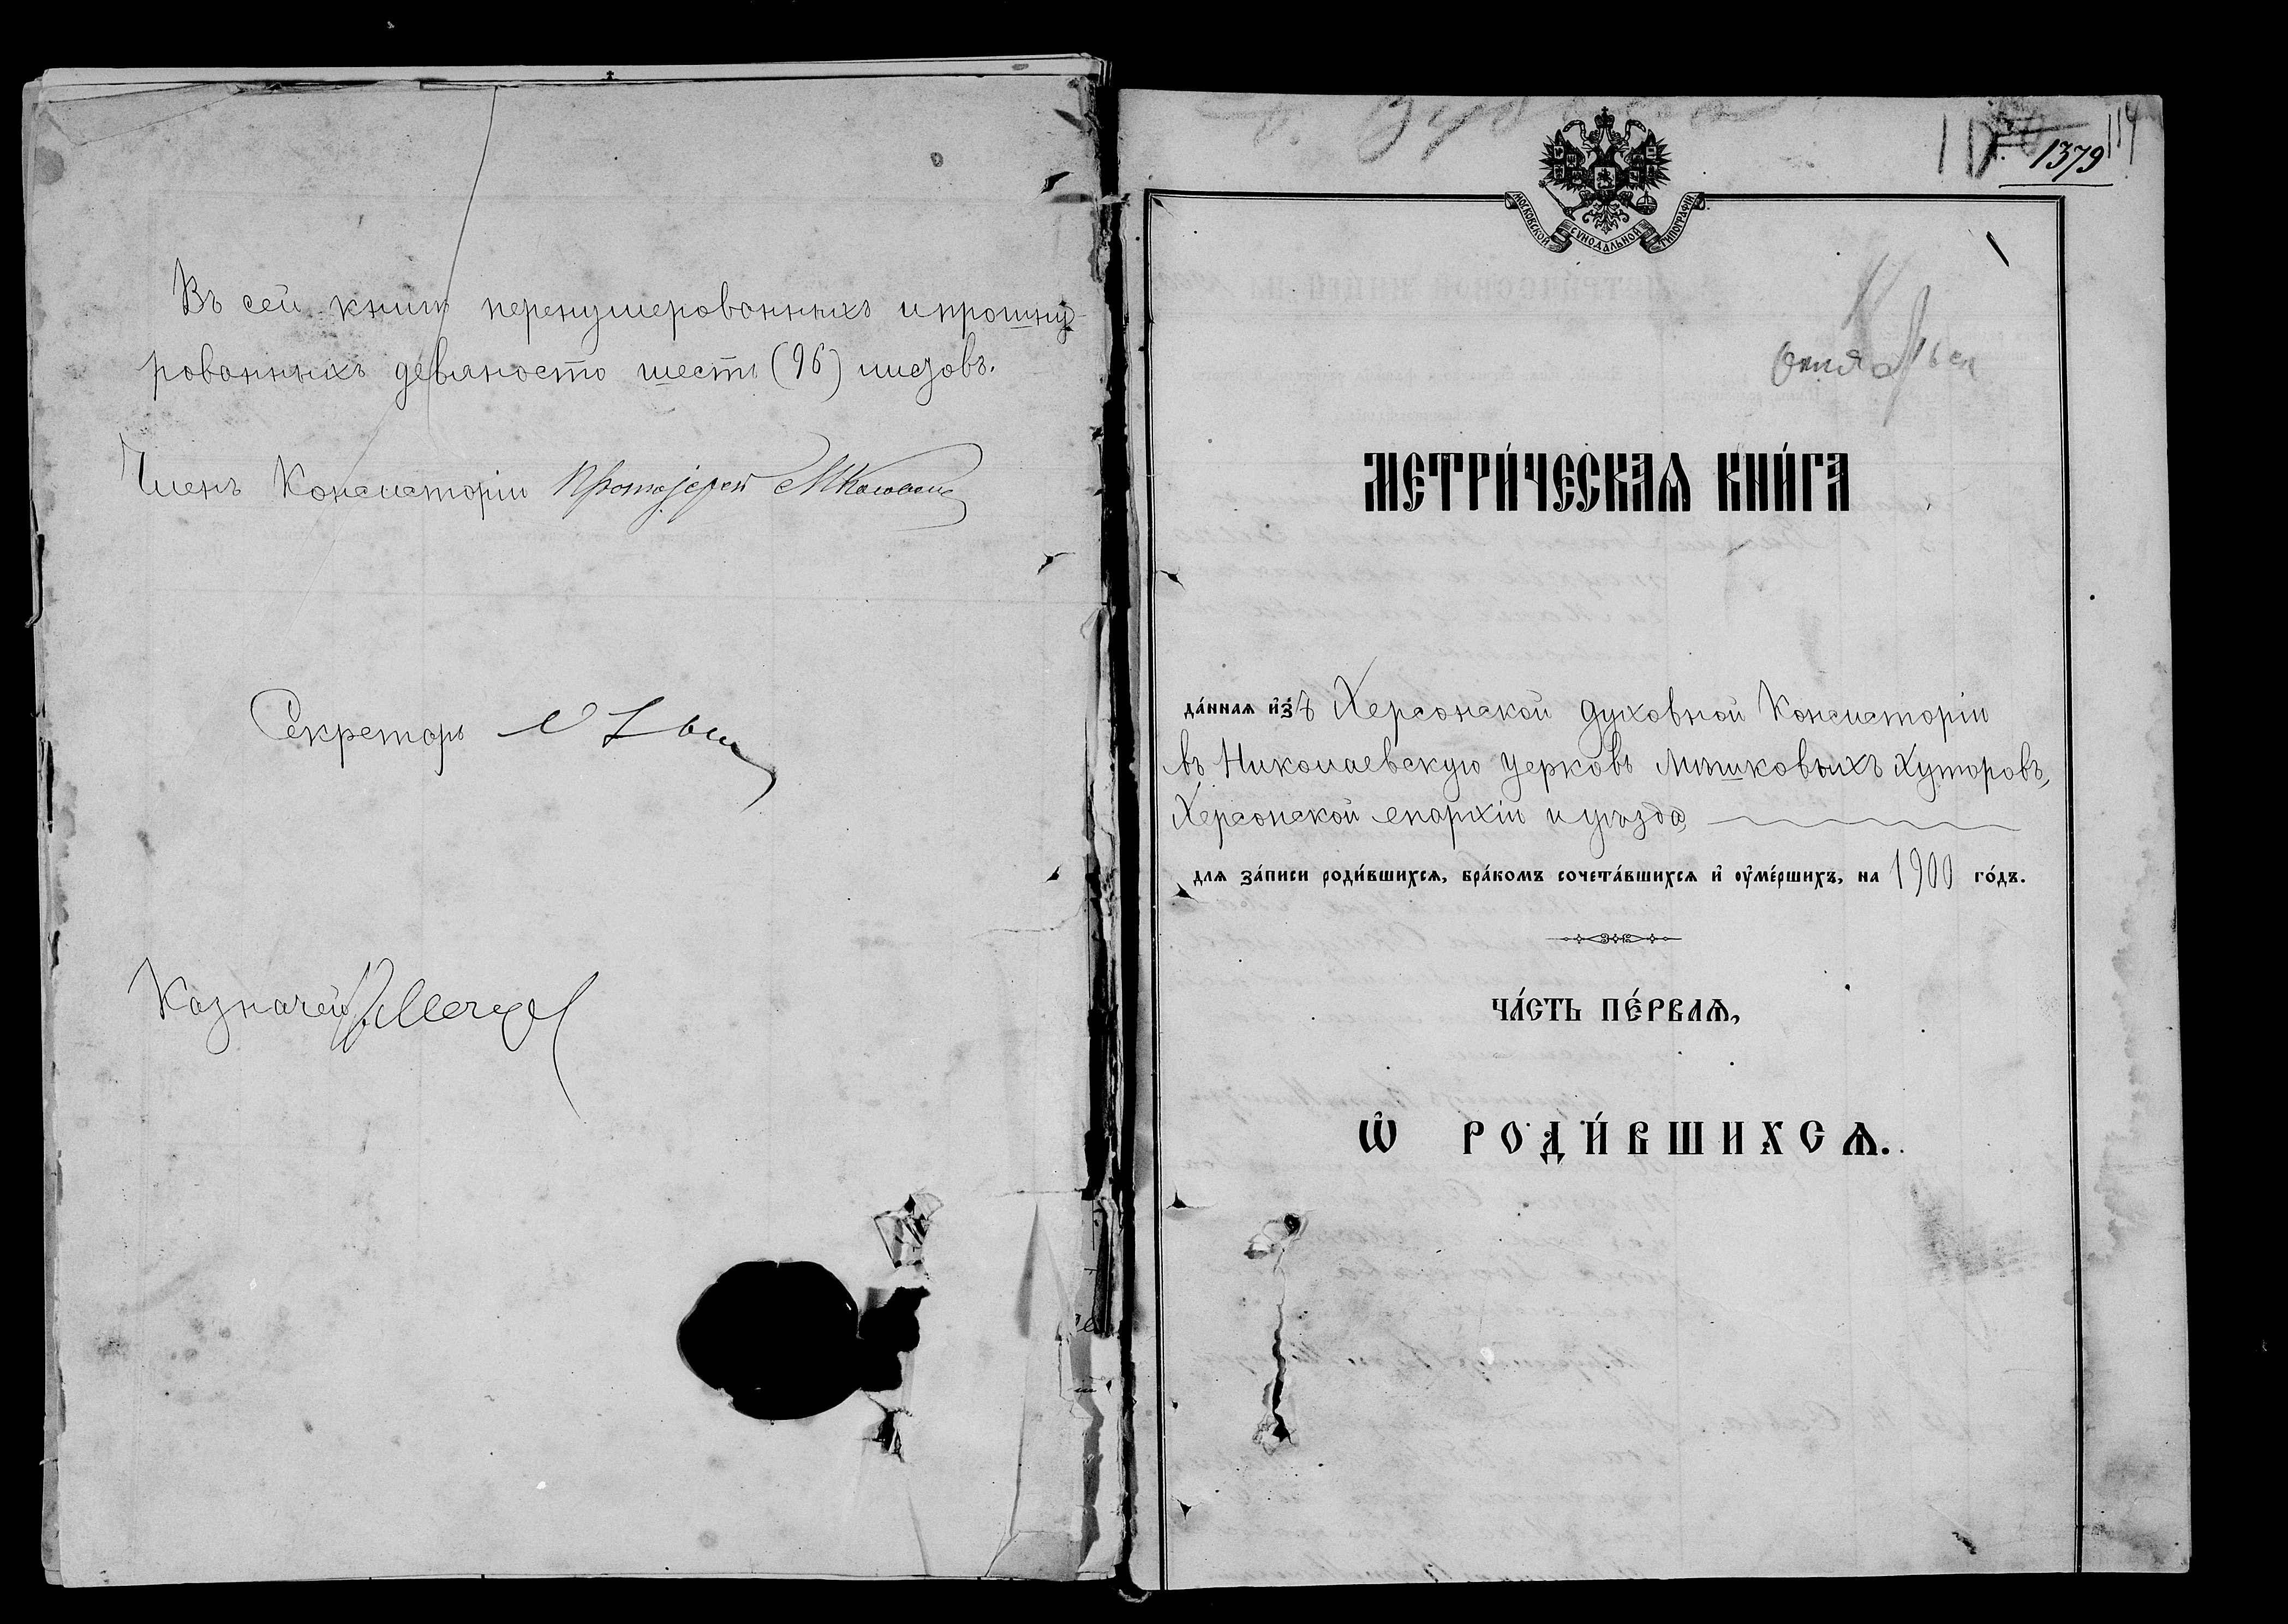 Въ сей книгѣ перенумерованныхъ и прошну-
рованныхъ девяносто шесть (96) листовъ.
Членъ Консисторіи Протоіерей
Секретарь
Казначей
1379
114
МОСКОВСКОЙ СѴНОДАЛЬНОЙ ТИПОГРАФІИ
МЕТРИ́ЧЕСКАѦ КНИ́ГА
да́ннаѧ и҆зъ Херсонской духовной Консисторіи
въ Николаевскую церковь Мѣшковыхъ Хуторовъ,
Херсонской епархіи и уѣзда
для за́писи роди́вшихсѧ, бра́комъ сочета́вшихсѧ и҆ ᲂу҆ме́ршихъ, на 1900 го́дъ.
ЧА́СТЬ ПЕ́РВАѦ,
Ѡ҆ РОДИ́ВШИХСѦ.